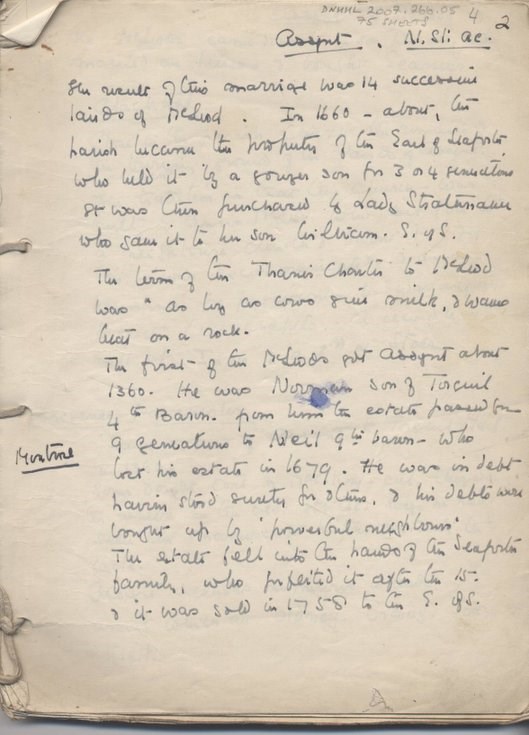 DNHHL 2007.266.05 4
75 SHEETS
2
Assynt. N. St: Ac.
The result of this marriage was 14 successive
lairds of McLeod. In 1660 - about, the
parish became the property of the Earl of Seaforth
who held it by a younger son for 3 or 4 generations
It was then purchased by Lady Strathnaver
who gave it to her son William. E. of S.
The term of the Thane's Charter to McLeod
was "as long as cows give milk, & waves
beat on a rock.
The first of the McLeods got Assynt about
1360. He was Norman son of Torcuil
4th Baron. from him the estate passed for
9 generations to Neil 9th baron - who
Montrose
lost his estate in 1679. He was in debt
having stood surety for others, & his debts were
bought up by 'powerful neighbours'
The estate fell into the hands of the Seaforth
family, who forfeited it after the 15.
& it was sold in 1758 to the E. of S.